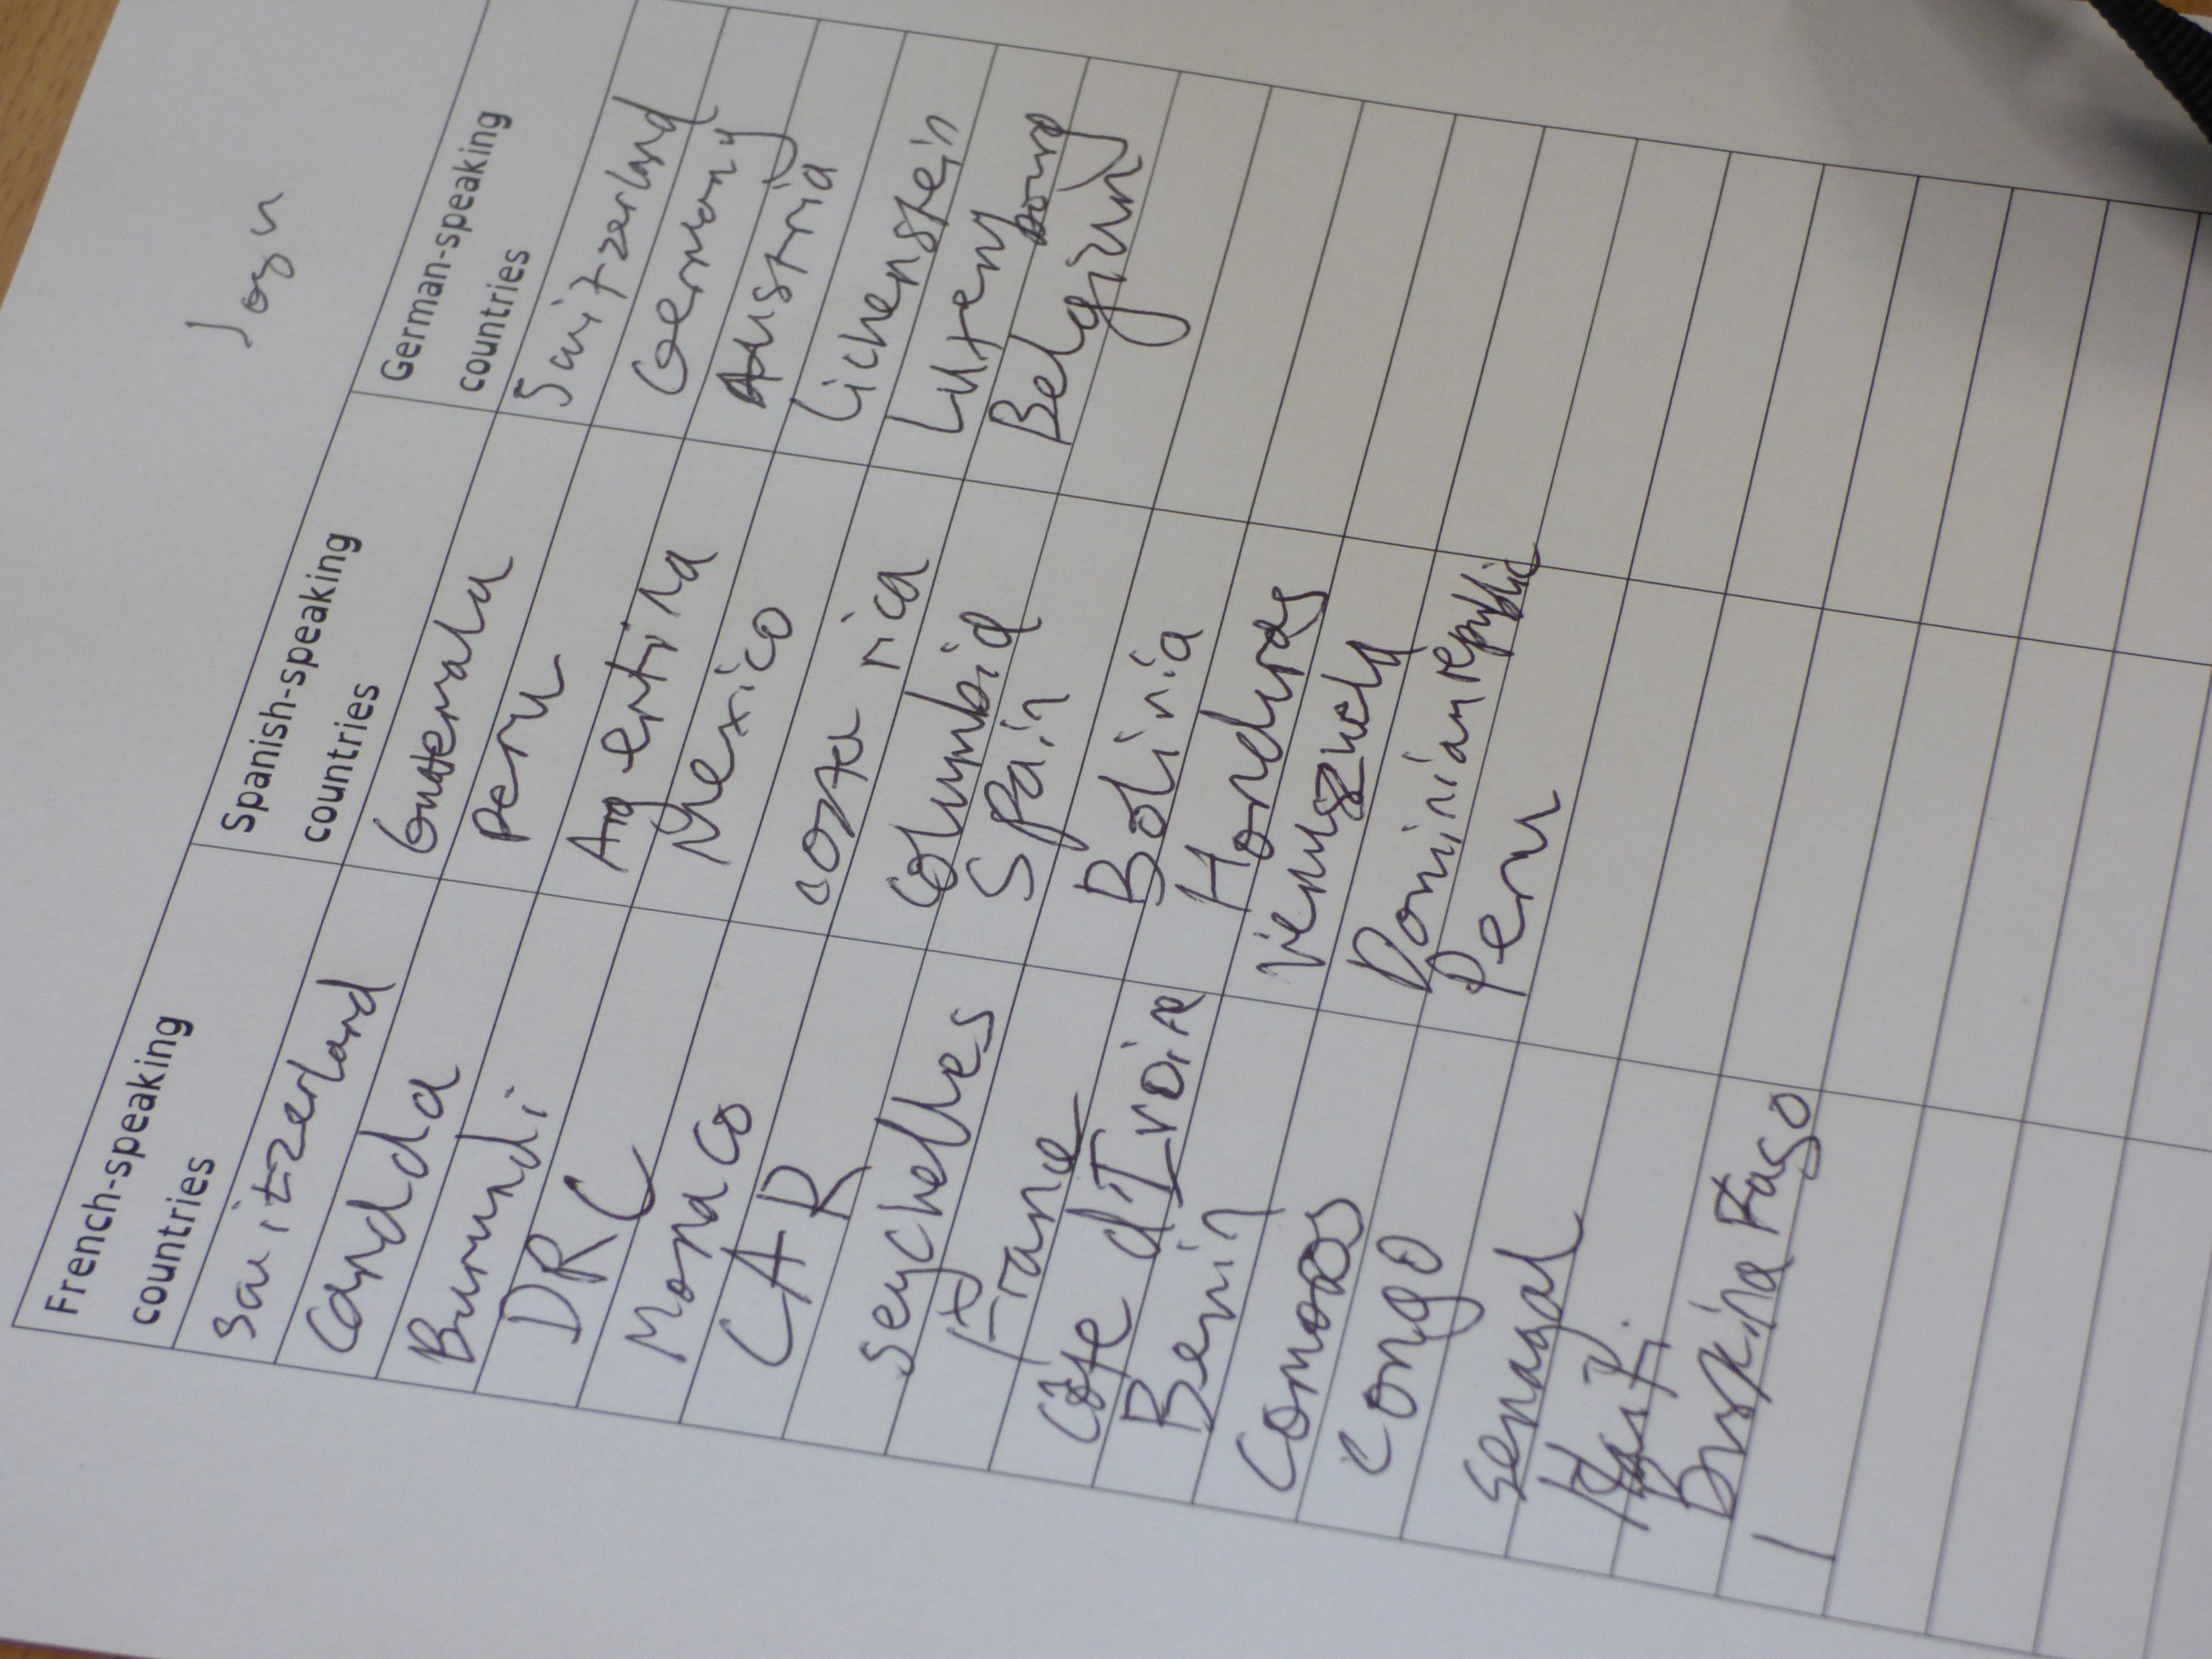 French-speaking countries
Switzerland
Canada
Burundi
DRC
Monaco
CAR
seychelles
France
Côte d'Ivoire
Benin
Comoros
Congo
Senagal
Haiti
Burkina Faso
Spanish-speaking countries
Guatemala
Peru
Argentina
Mexico
costa rica
Columbia
Spain
Bolivia
Honduras
Dominian republic
Peru
German-speaking countries
Switzerland
Germany
Austria
Lichenstein
Luxem bourg
Belgium